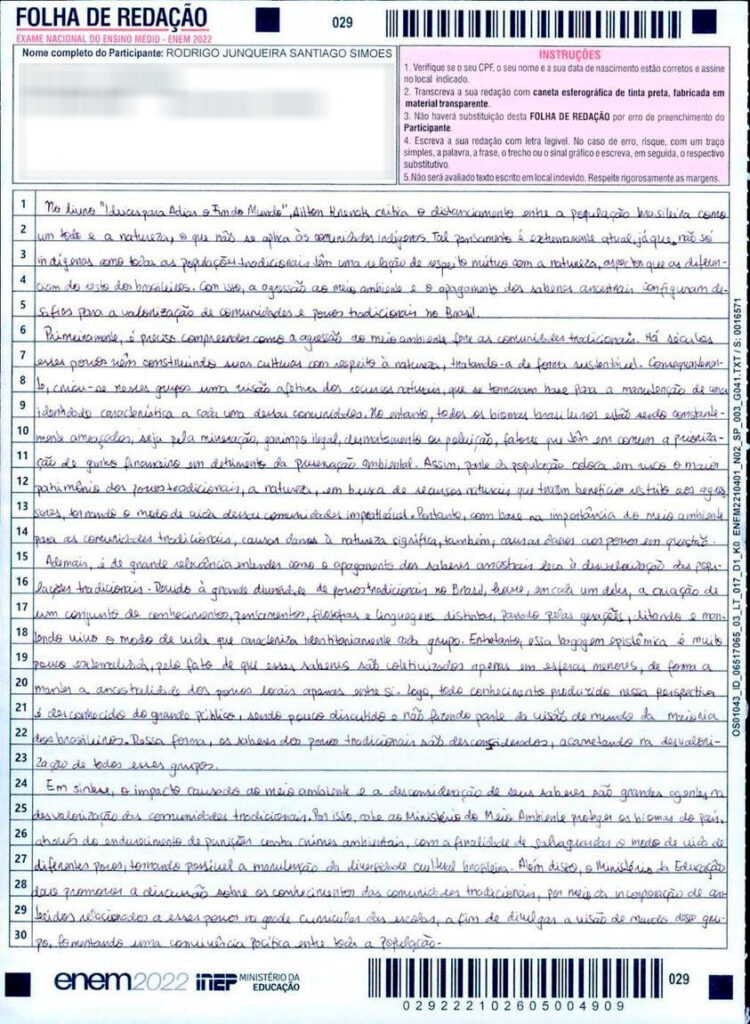 FOLHA DE REDAÇÃO
EXAME NACIONAL DO ENSINO MÉDIO - ENEM 2022
029
Nome completo do Participante: RODRIGO JUNQUEIRA SANTIAGO SIMOES
INSTRUÇÕES
1. Verifique se o seu CPF, o seu nome e a sua data de nascimento estão corretos e assine
no local indicado.
2. Transcreva a sua redação com caneta esferográfica de tinta preta, fabricada em
material transparente.
3. Não haverá substituição desta FOLHA DE REDAÇÃO por erro de preenchimento do
Participante.
4. Escreva a sua redação com letra legível. No caso de erro, risque, com um traço
simples, a palavra, a frase, o trecho ou o sinal gráfico e escreva, em seguida, o respectivo
substitutivo.
5. Não será avaliado texto escrito em local indevido. Respeite rigorosamente as margens.
1 No livro "Ideias para Adiar o Fim do Mundo", Ailton Krenak critica o distanciamento entre a população brasileira como
2 um todo e a natureza, o que não se aplica às comunidades indígenas. Tal pensamento é extremamente atual, já que, não só
3 indígenas como todas as populações tradicionais têm uma relação de respeito mútuo com a natureza, aspectos que as diferen-
4 ciam do resto dos brasileiros. Com isso, a agressão ao meio ambiente e o apagamento dos saberes ancestrais configuram de-
5 safios para a valorização de comunidades e povos tradicionais no Brasil.
6 Primeiramente, é preciso compreender como a agressão ao meio ambiente fere as comunidades tradicionais. Há séculos
7 esses povos vêm construindo suas culturas com respeito à natureza, tratando-a de forma sustentável. Consequentemen-
8 te, criou-se nesses grupos uma visão afetiva dos recursos naturais, que se tornaram base para a manutenção de uma
9 identidade característica a cada uma dessas comunidades. No entanto, todos os biomas brasileiros estão sendo constante-
10 mente ameaçados, seja pela mineração, garimpo ilegal, desmatamento ou poluição, fatores que têm em comum a prioriza-
11 ção de ganho financeiro em detrimento da preservação ambiental. Assim, parte da população coloca em risco o maior
12 patrimônio dos povos tradicionais, a natureza, em busca de recursos naturais que trazem benefício restrito aos agres-
13 sores, tornando o modo de vida dessas comunidades impraticável. Portanto, com base na importância do meio ambiente
14 para as comunidades tradicionais, causar danos à natureza significa, também, causar danos aos povos em questão.
15 Ademais, é de grande relevância entender como o apagamento dos saberes ancestrais leva à desvalorização das popu-
16 lações tradicionais. Devido à grande diversidade de povos tradicionais no Brasil, houve, em cada um deles, a criação de
17 um conjunto de conhecimentos, pensamentos, filosofias e linguagens distintas, passado pelas gerações, ditando e man-
18 tendo vivo o modo de vida que caracteriza identitariamente cada grupo. Entretanto, essa bagagem epistêmica é muito
19 pouco externalizada, pelo fato de que esses saberes são coletivizados apenas em esferas menores, de forma a
20 manter a ancestralidade dos povos locais apenas entre si. Logo, todo conhecimento produzido nessa perspectiva
21 é desconhecido do grande público, sendo pouco discutido e não fazendo parte da visão de mundo da maioria
22 dos brasileiros. Dessa forma, os saberes dos povos tradicionais são desconsiderados, acarretando na desvalori-
23 zação de todos esses grupos.
24 Em síntese, o impacto causado ao meio ambiente e a desconsideração de seus saberes são grandes agentes na
25 desvalorização das comunidades tradicionais. Por isso, cabe ao Ministério do Meio Ambiente proteger os biomas do país,
26 através do endurecimento de punições contra crimes ambientais, com a finalidade de salvaguardar o modo de vida de
27 diferentes povos, tornando possível a manutenção da diversidade cultural brasileira. Além disso, o Ministério da Educação
28 deve promover a discussão sobre os conhecimentos das comunidades tradicionais, por meio da incorporação de con-
29 teúdos relacionados a esses povos na grade curricular das escolas, a fim de divulgar a visão de mundo desse gru-
30 po, fomentando uma convivência pacífica entre toda a população.
OS01043_ID_06517065_03_LT_017_D1_K0 ENEM2210401_N02_SP_003_G041.TXT / S: 0016571
enem2022
inep
MINISTÉRIO DA
EDUCAÇÃO
029
0292221026050049​09